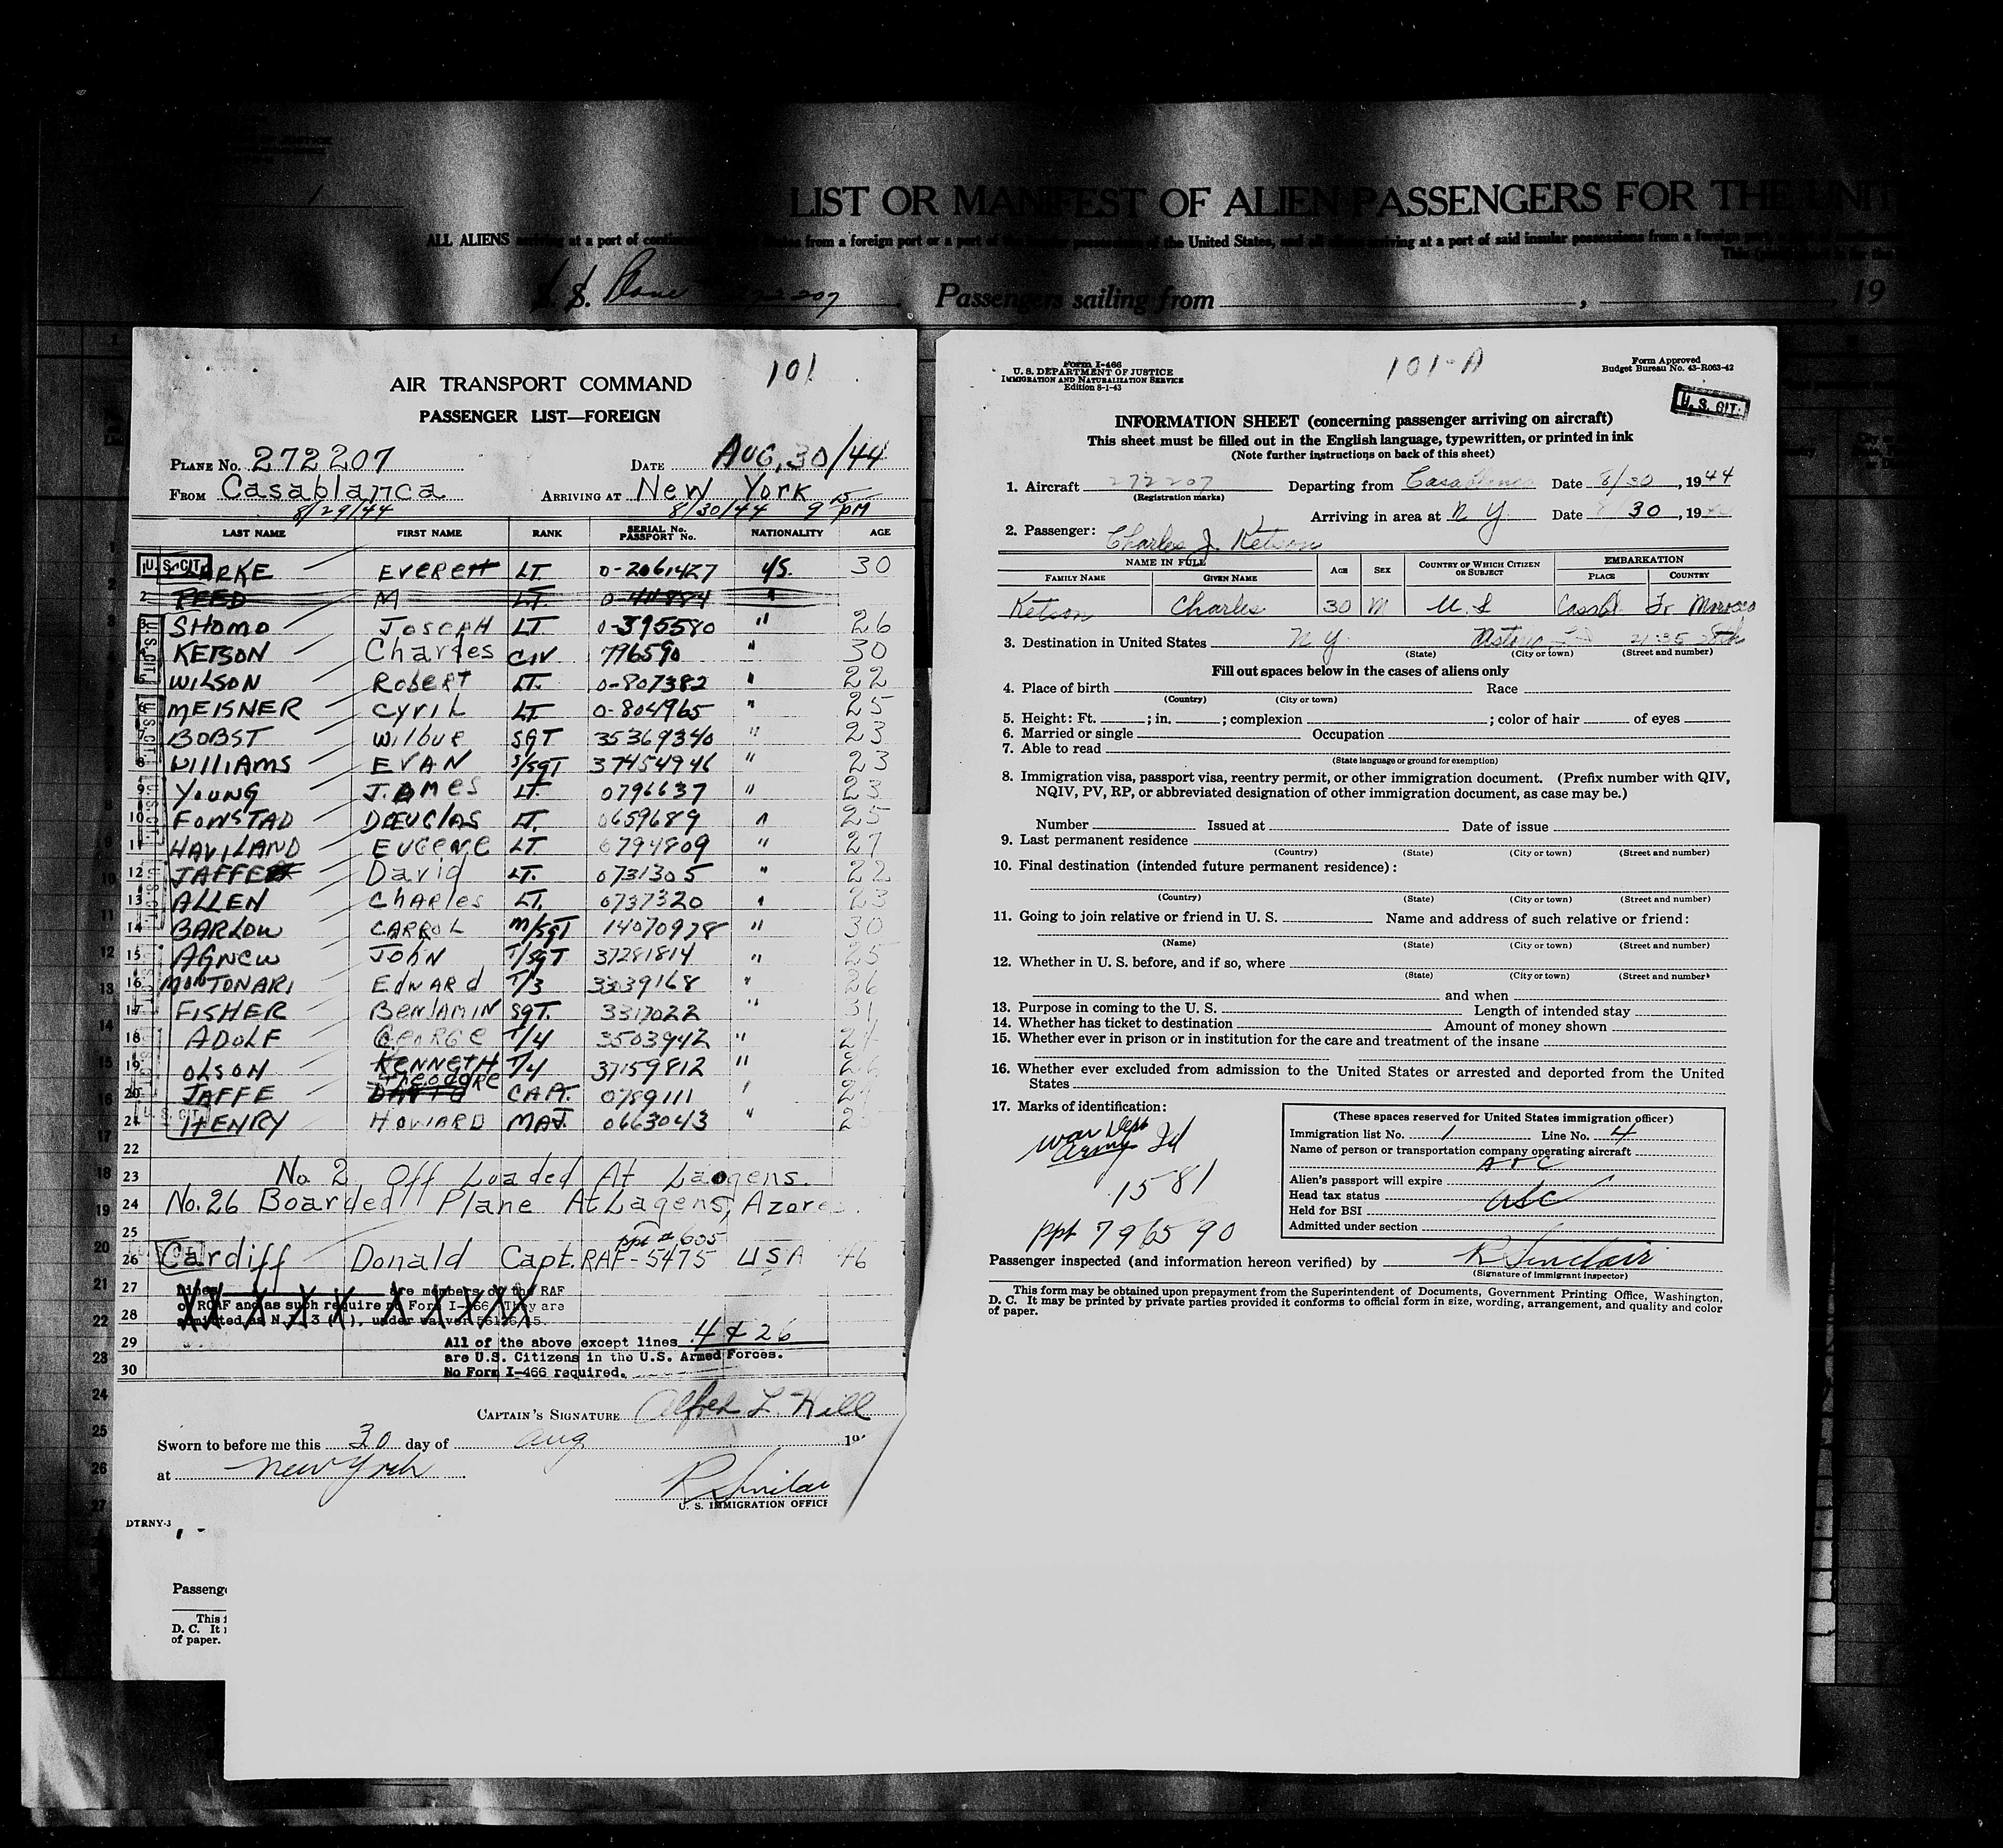 LIST OR MANIFEST OF ALIEN PASSENGERS FOR THE UNIT
ALL ALIENS arriving at a port of from a foreign port or a port of the United States, and arriving at a port of said insular possessions from a foreign
S. S. Plane 272207 Passengers sailing from , , 19
101
AIR TRANSPORT COMMAND
PASSENGER LIST—FOREIGN
PLANE No. 272207 DATE AUG, 30/44
FROM Casablanca ARRIVING AT New York
8/29/44 8/30/44 9 15 PM
LAST NAME FIRST NAME RANK SERIAL No. PASSPORT No. NATIONALITY AGE
1 U. S. CIT. ARKE EVEREtt LT. 0-2061427 US. 30
2 REED M LT. "
3 SHOMO JOSEPH LT 0-395580 " 26
4 KETSON Charles CIV 796590 " 30
5 WILSON RObERT LT. 0-807382 " 22
6 MEISNER CYRIL LT. 0-804965 " 25
7 BOBST WILbUR SGT 35369340 " 23
8 WILLIAMS EVAN S/SGT 37454946 " 23
9 YOUNG JAMES LT. 0796637 " 23
10 FONSTAD DOUGLAS LT. 0659689 " 25
11 HAVILAND EUGENE LT 0794809 " 27
12 JAFFE David LT. 0731305 " 22
13 ALLEN CHARLES LT. 0737320 " 23
14 BARLOW CARROL M/SGT 14070978 " 30
15 AGNEW JOHN T/SGT 37281814 " 25
16 MONTONARI EDWARd T/3 3339168 " 26
17 FISHER BENJAMIN SGT. 3317022 " 31
18 ADOLF GEORGE T/4 3503942 "
19 OLSON KENNETH T/4 37159812 " 26
20 JAFFE Theodore CAPT. 0789111 "
21 HENRY HOWARD MAJ. 0663043 "
22
23 No. 2 Off Loaded At Laogens.
24 No. 26 Boarded Plane At Lagens, Azores.
25 ppt # 605
26 Cardiff Donald Capt. RAF-5475 USA 46
27 Lines are members of the RAF
28 or RCAF and as such require no Form I-466. They are
admitted as N.I. 3 ( ), under waiver
29 All of the above except lines 4 & 26
are U.S. Citizens in the U.S. Armed Forces.
30 No Form I-466 required.
CAPTAIN'S SIGNATURE Alfred L. Hill
Sworn to before me this 30 day of Aug 19
at New York
R Sinclair
U. S. IMMIGRATION OFFICE
DTRNY-3
Passenge
This f
D. C. It
of paper.
Form I-466
U. S. DEPARTMENT OF JUSTICE
IMMIGRATION AND NATURALIZATION SERVICE
Edition 8-1-43
101-A
Form Approved
Budget Bureau No. 43-R063-42
U. S. CIT.
INFORMATION SHEET (concerning passenger arriving on aircraft)
This sheet must be filled out in the English language, typewritten, or printed in ink
(Note further instructions on back of this sheet)
1. Aircraft 272207 Departing from Casablanca Date 8/30, 1944
(Registration marks)
Arriving in area at N Y Date 30, 19
2. Passenger: Charles J. Ketson
NAME IN FULL AGE SEX COUNTRY OF WHICH CITIZEN OR SUBJECT EMBARKATION
FAMILY NAME GIVEN NAME PLACE COUNTRY
Ketson Charles 30 M U. S Casabl Fr Morocco
3. Destination in United States N Y. Astoria 2135 38th
(State) (City or town) (Street and number)
Fill out spaces below in the cases of aliens only
4. Place of birth Race
(Country) (City or town)
5. Height: Ft. ; in. ; complexion ; color of hair of eyes
6. Married or single Occupation
7. Able to read
(State language or ground for exemption)
8. Immigration visa, passport visa, reentry permit, or other immigration document. (Prefix number with QIV,
NQIV, PV, RP, or abbreviated designation of other immigration document, as case may be.)
Number Issued at Date of issue
9. Last permanent residence
(Country) (State) (City or town) (Street and number)
10. Final destination (intended future permanent residence):
(Country) (State) (City or town) (Street and number)
11. Going to join relative or friend in U. S. Name and address of such relative or friend:
(Name) (State) (City or town) (Street and number)
12. Whether in U. S. before, and if so, where
(State) (City or town) (Street and number)
and when
13. Purpose in coming to the U. S. Length of intended stay
14. Whether has ticket to destination Amount of money shown
15. Whether ever in prison or in institution for the care and treatment of the insane
16. Whether ever excluded from admission to the United States or arrested and deported from the United
States
17. Marks of identification:
War Dept
Army Id
1581
ppt 796590
(These spaces reserved for United States immigration officer)
Immigration list No. 1 Line No. 4
Name of person or transportation company operating aircraft
ATC
Alien's passport will expire
Head tax status USC
Held for BSI
Admitted under section
Passenger inspected (and information hereon verified) by R Sinclair
(Signature of immigrant inspector)
This form may be obtained upon prepayment from the Superintendent of Documents, Government Printing Office, Washington,
D. C. It may be printed by private parties provided it conforms to official form in size, wording, arrangement, and quality and color
of paper.